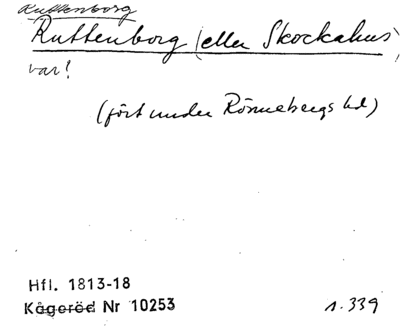 Ruttenborg
Ruttenborg (eller Skockahus)
var!
(fört under Rönnebergs hd)
Hfl. 1813-18
Kågeröd Nr 10253
1.339